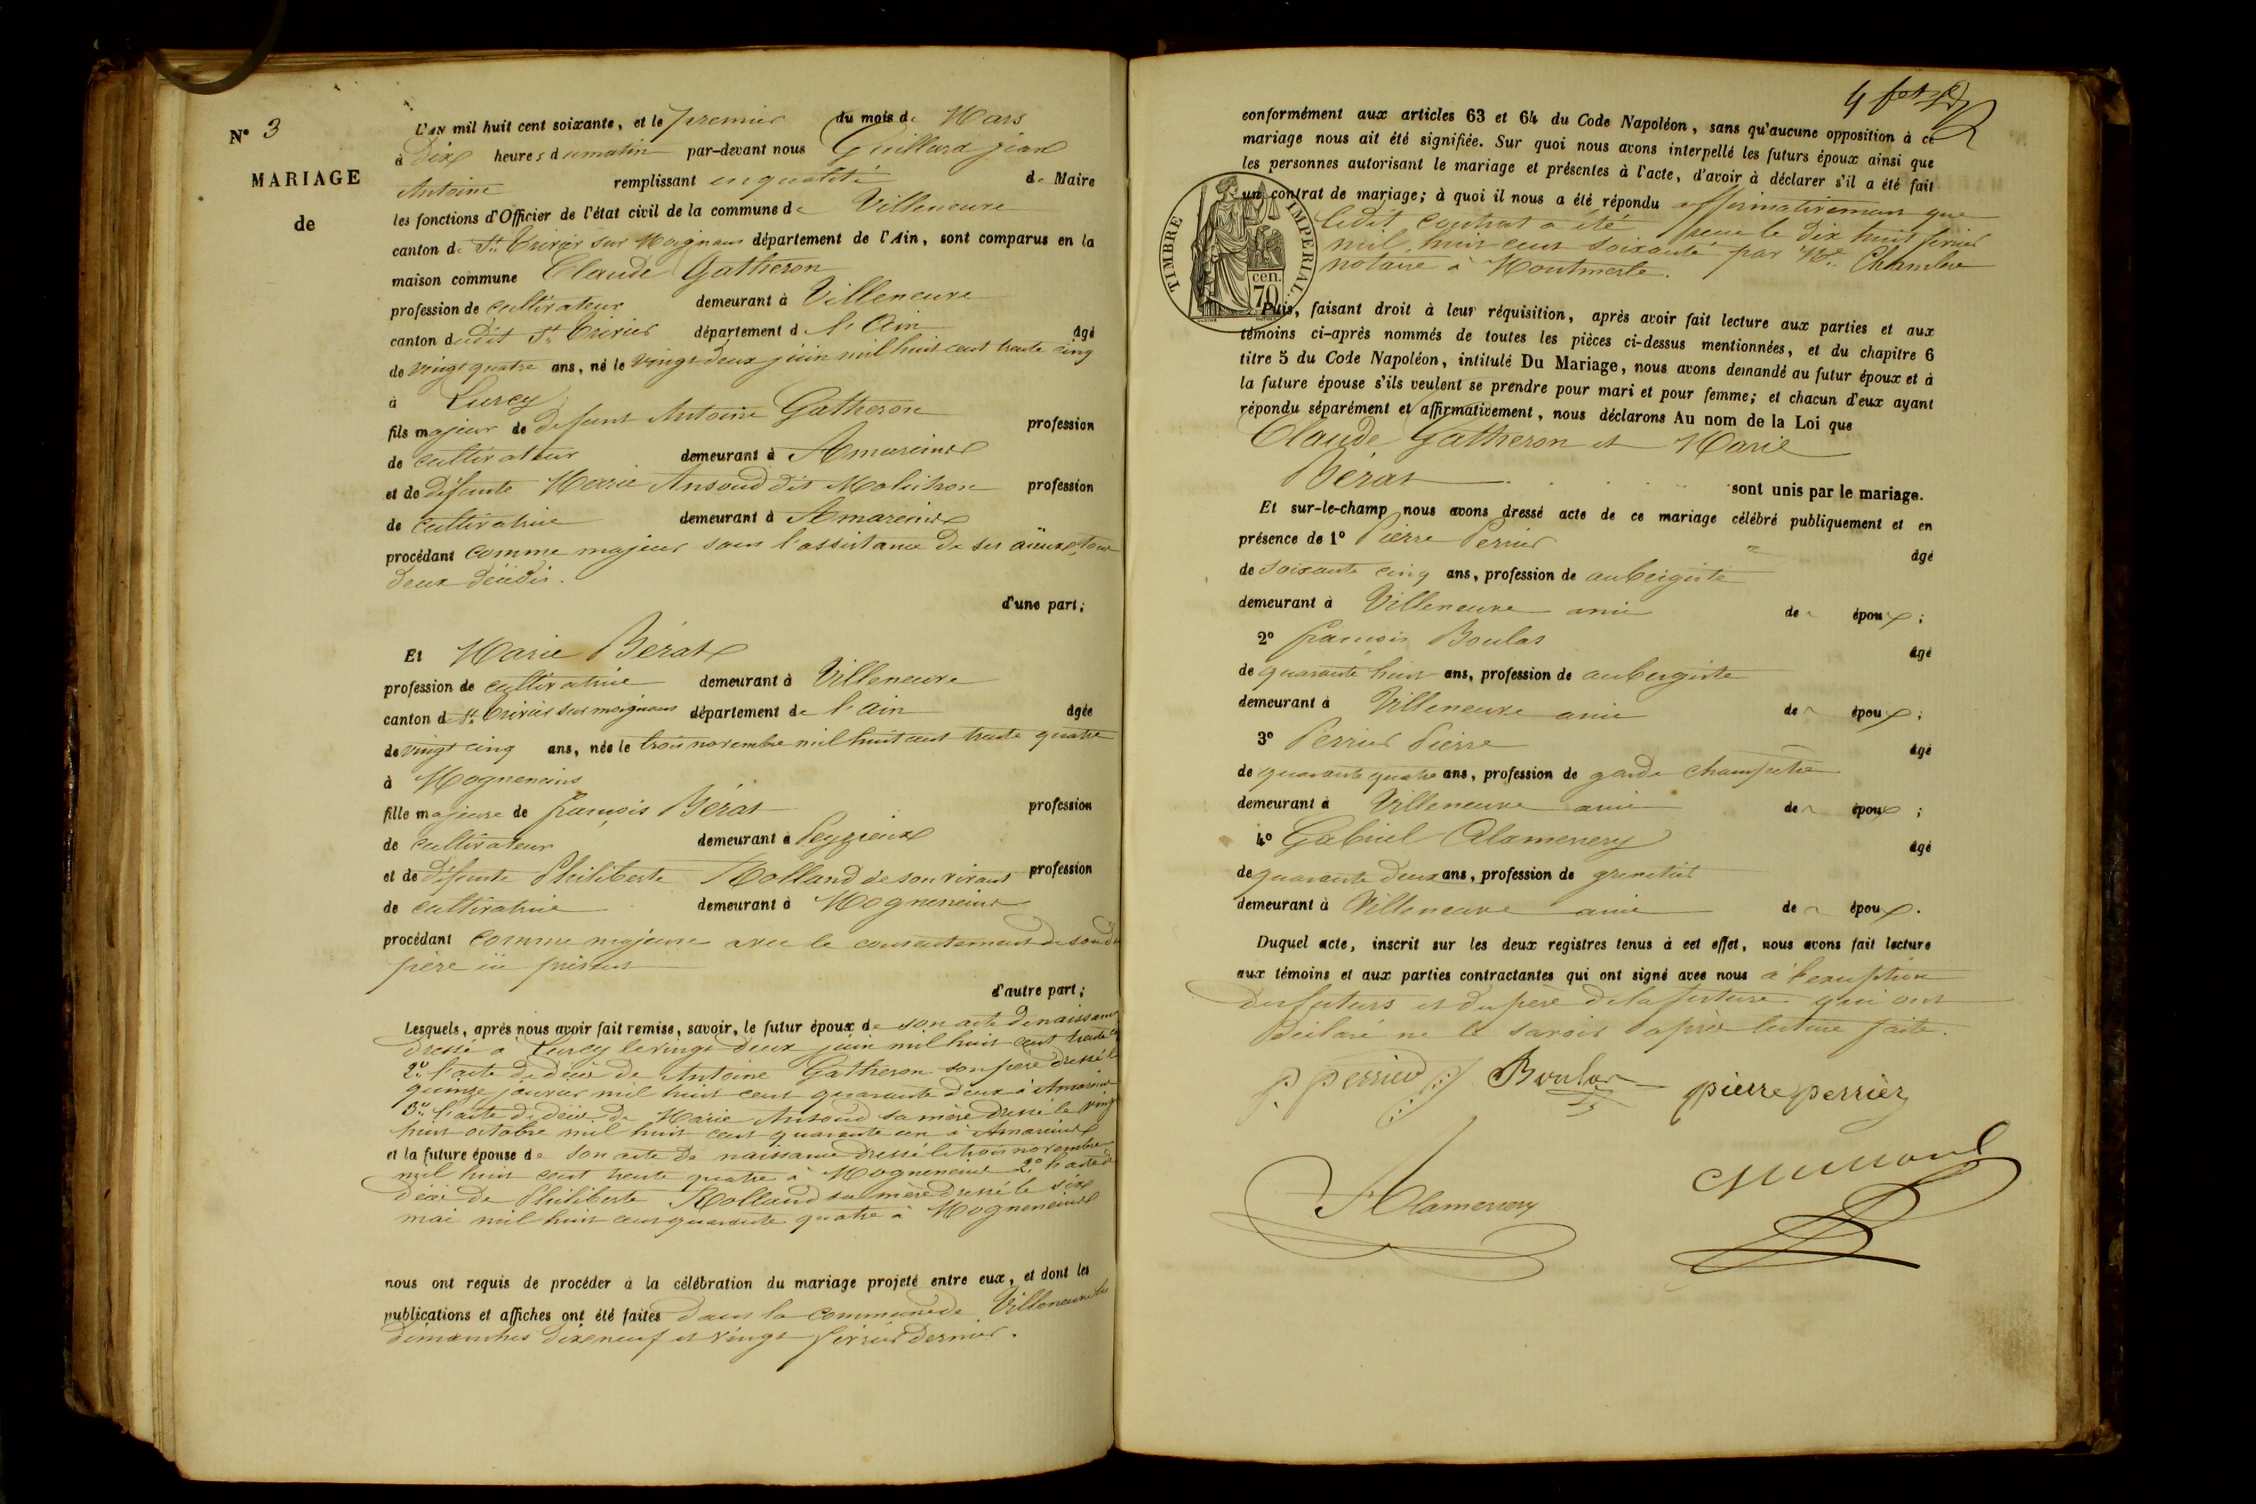 N° 3
MARIAGE
de
L'AN mil huit cent soixante, et le premier du mois de Mars
à Dix heures du matin par-devant nous Guillard jean
Antoine remplissant en qualité de Maire
les fonctions d'Officier de l'état civil de la commune de Villeneuve
canton de St. Trivier sur Moignans département de l'Ain, sont comparus en la
maison commune Claude Gatheron
profession de cultivateur demeurant à Villeneuve
canton dudit St. Trivier département de l'Ain âgé
de vingt quatre ans, né le vingt deux juin mil huit cent trente cinq
à Lurcy
fils majeur de defunt Antoine Gatheron profession
de cultivateur demeurant à Amareins
et de défunte Marie Ansoud dit profession
de cultivatrice demeurant à Amareins
procédant comme majeur sans l'assistance de ses aïeux, tous
deux décédés.
d'une part;
Et Marie Bérat
profession de cultivatrice demeurant à Villeneuve
canton de St. Trivier sur moignans département de l'ain âgée
de vingt cinq ans, née le trois novembre mil huit cent trente quatre
à Mogneneins
fille majeure de françois Bérat profession
de cultivateur demeurant à Peyzieux
et de défunte Philiberte Rolland de son vivant profession
de cultivatrice demeurant à Mogneneins
procédant comme majeure avec le consentement de son dit
père ici présent
d'autre part;
Lesquels, après nous avoir fait remise, savoir, le futur époux de son acte de naissance
dressé à Lurcy le vingt deux juin mil huit cent trente cinq
2° l'acte de décès de Antoine Gatheron son père dressé le
quinze janvier mil huit cent quarante deux à Amareins
3° l'acte de décès de Marie Ansoud sa mère dressé le vingt
huit octobre mil huit cent quarante un à Amareins
et la future épouse de son acte de naissance dressé le trois novembre
mil huit cent trente quatre à Mogneneins 2° l'acte de
décès de Philiberte Rolland sa mère dressé le six
mai mil huit cent quarante quatre à Mogneneins
nous ont requis de procéder à la célébration du mariage projeté entre eux, et dont les
publications et affiches ont été faites dans la commune de Villeneuve les
dimanches dix neuf et vingt février dernier.
conformément aux articles 63 et 64 du Code Napoléon, sans qu'aucune opposition à ce
mariage nous ait été signifiée. Sur quoi nous avons interpellé les futurs époux ainsi que
les personnes autorisant le mariage et présentes à l'acte, d'avoir à déclarer s'il a été fait
un contrat de mariage; à quoi il nous a été répondu affirmativement que
ledit contrat a été le dix huit février
mil huit cent soixante par Me. Chambre
notaire à Montmerle.
TIMBRE IMPERIAL
70 cen
Puis, faisant droit à leur réquisition, après avoir fait lecture aux parties et aux
témoins ci-après nommés de toutes les pièces ci-dessus mentionnées, et du chapitre 6
titre 5 du Code Napoléon, intitulé Du Mariage, nous avons demandé au futur époux et à
la future épouse s'ils veulent se prendre pour mari et pour femme; et chacun d'eux ayant
répondu séparément et affirmativement, nous déclarons Au nom de la Loi que
Claude Gatheron et Marie
Bérat sont unis par le mariage.
Et sur-le-champ nous avons dressé acte de ce mariage célébré publiquement et en
présence de 1° Pierre Perrier âgé
de soixante cinq ans, profession de aubergiste
demeurant à Villeneuve ami des époux;
2° françois Boulas âgé
de quarante huit ans, profession de aubergiste
demeurant à Villeneuve ami des époux;
3° Perrier Pierre âgé
de quarante quatre ans, profession de garde champêtre
demeurant à Villeneuve ami des époux;
4° Gabriel Alamercery âgé
de quarante deux ans, profession de grenetier
demeurant à Villeneuve ami des époux.
Duquel acte, inscrit sur les deux registres tenus à cet effet, nous avons fait lecture
aux témoins et aux parties contractantes qui ont signé avec nous à l'exception
des futurs et du père de la future qui ont
déclaré ne le savoir après lecture faite.
p perrier Boulas pierre perrier
Alamercery